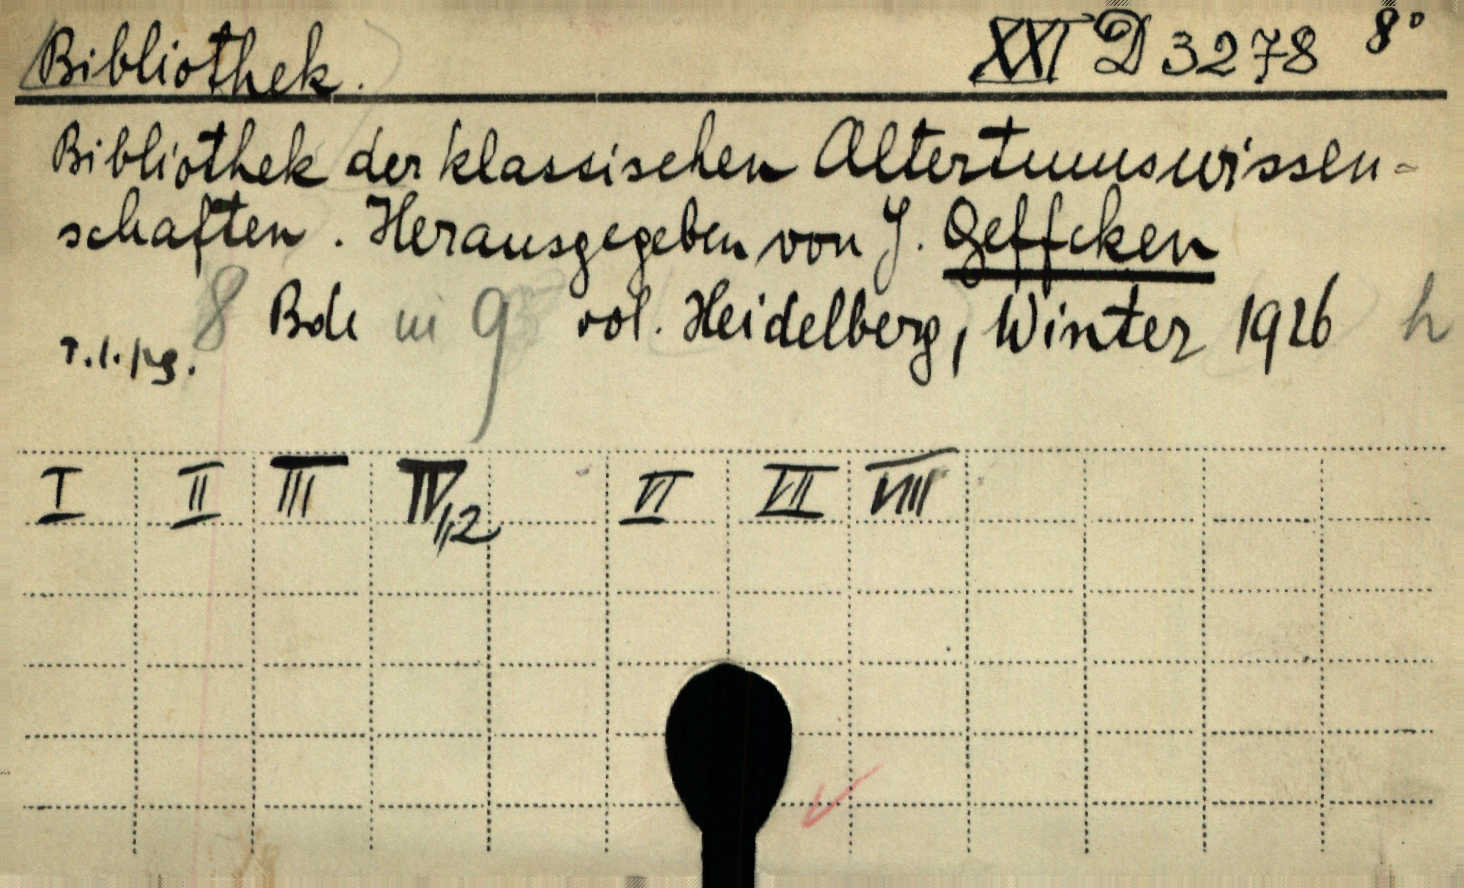 Bibliothek. XXI D 3278 8°
Bibliothek der klassischen Altertumswissen-
schaften. Herausgegeben von J. Geffcken
8 Bde in 9 vol. Heidelberg, Winter 1926 h
I II III IV,1,2 VI VII VIII